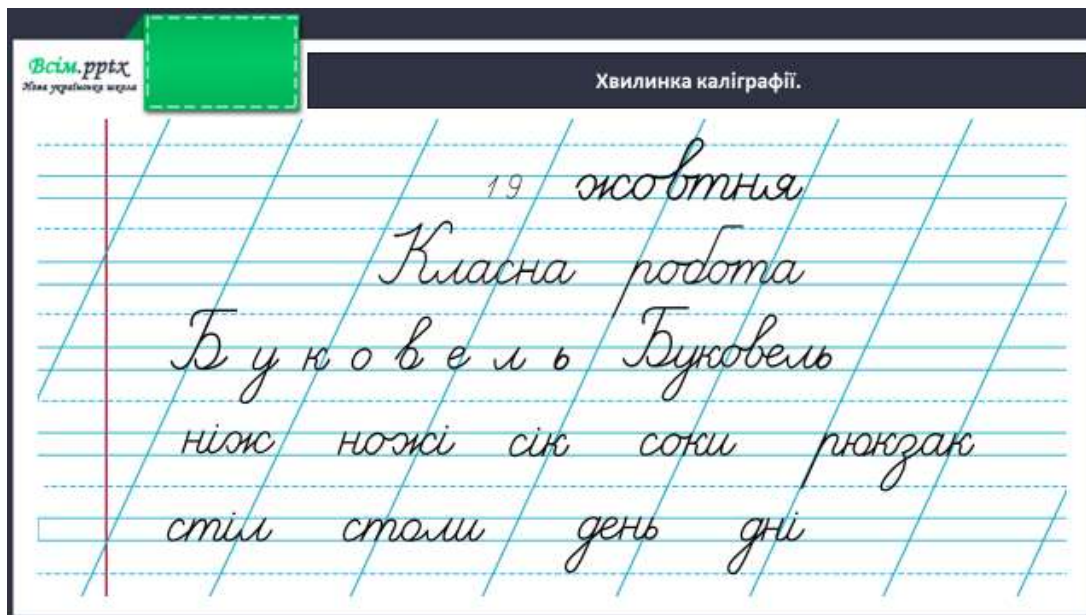 Всім.pptx
Нова українська школа
Хвилинка каліграфії.
19 жовтня
Класна робота
Б у к о в е л ь Буковель
ніж ножі сік соки рюкзак
стіл столи день дні